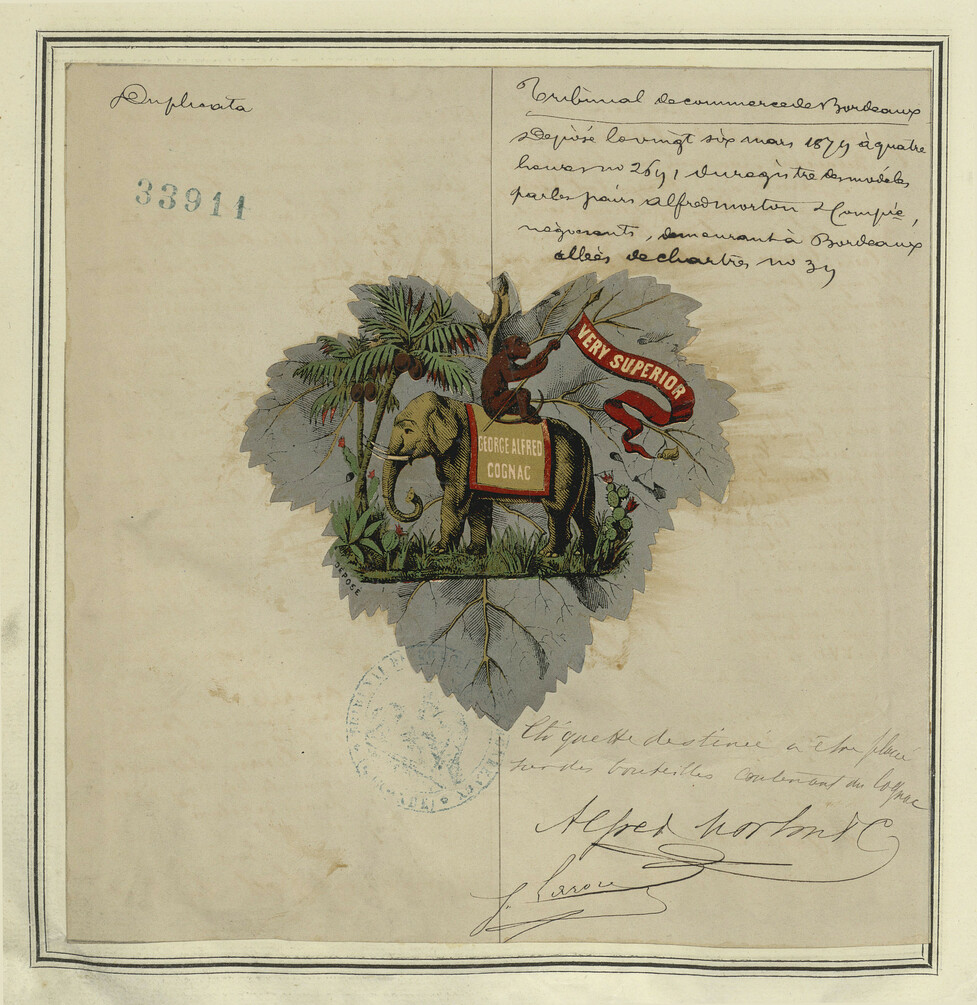 Duplicata
33911
Tribunal de commerce de Bordeaux
Déposé le vingt six mars 1879 à quatre
heures no 269, du registre des modèles
par les sieurs Alfred Morton & Compie,
négociants, demeurant à Bordeaux
allées de chartres no 39
VERY SUPERIOR
GEORGE ALFRED
COGNAC
DÉPOSÉ
TRIBUNAL
Etiquette destinée à être placée
sur des bouteilles contenant du Cognac
Alfred Morton & C